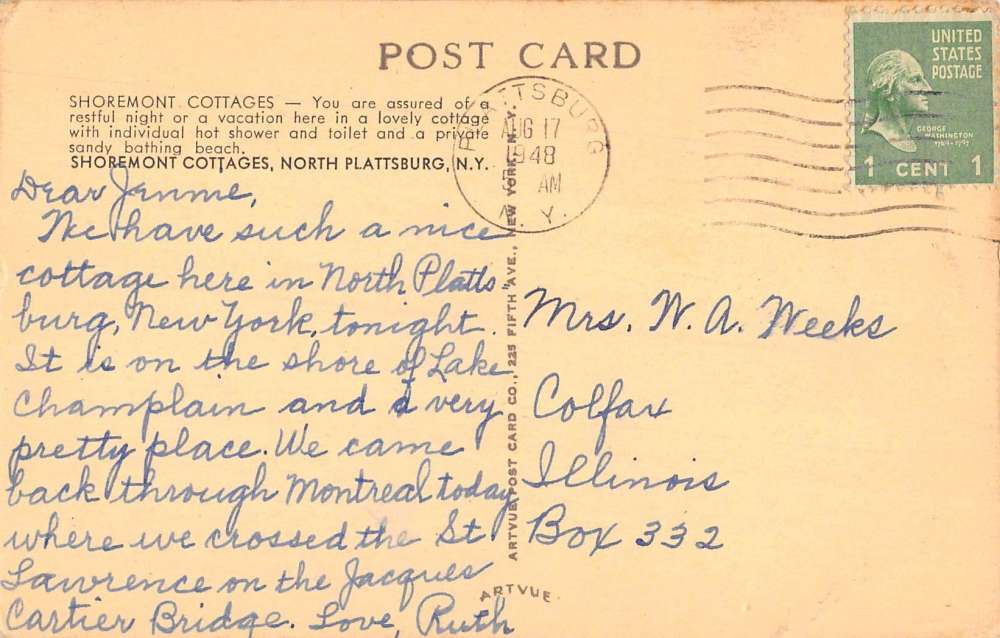 POST CARD
SHOREMONT COTTAGES — You are assured of a
restful night or a vacation here in a lovely cottage
with individual hot shower and toilet and a private
sandy bathing beach.
SHOREMONT COTTAGES, NORTH PLATTSBURG, N.Y.
Dear Jennie,
We have such a nice
cottage here in North Platts
burg, New York, tonight.
It is on the shore of Lake
Champlain and a very
pretty place. We came
back through Montreal today
where we crossed the St
Lawrence on the Jacques
Cartier Bridge. Love, Ruth
ARTVUE POST CARD CO., 225 FIFTH AVE., NEW YORK, N.Y.
ARTVUE
PLATTSBURG
AUG 17
1948
AM
N. Y.
UNITED
STATES
POSTAGE
GEORGE
WASHINGTON
1789-1797
1 CENT 1
Mrs. W. A. Weeks
Colfax
Illinois
Box 332